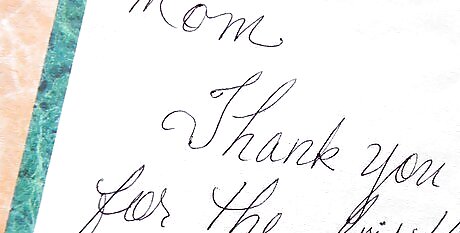 Mom
Thank you
for the